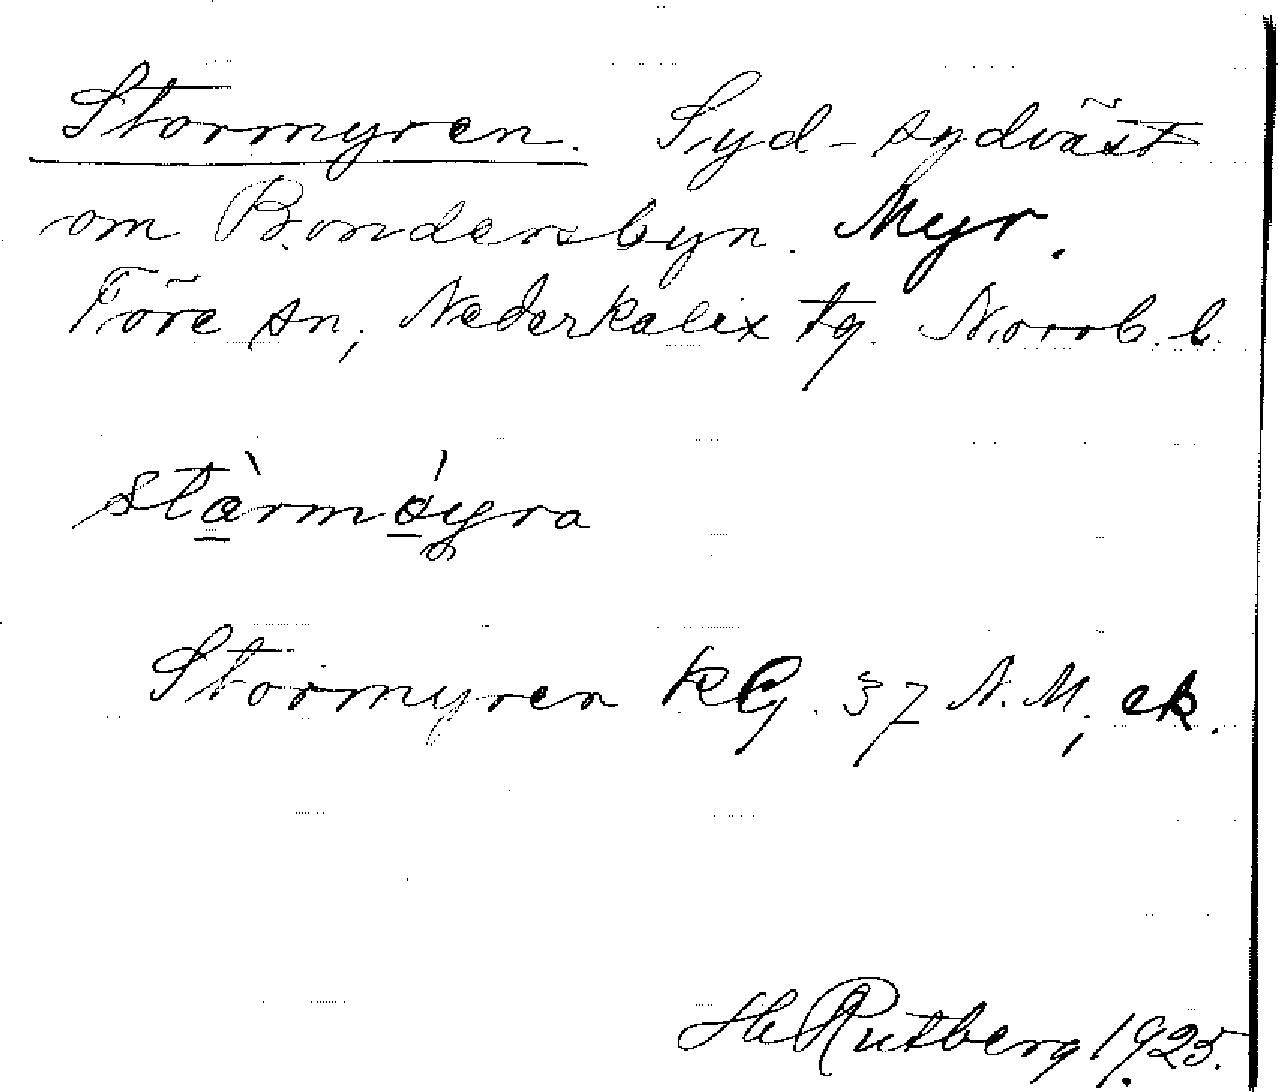 Stormyren. Syd-sydväst
om Bondersbyn. Myr.
Töre sn, Nederkalix tg. Norrb. l.
stàrmǿyra
Stormyren KG. 37 N.M, ek.
H Rutberg 1925.